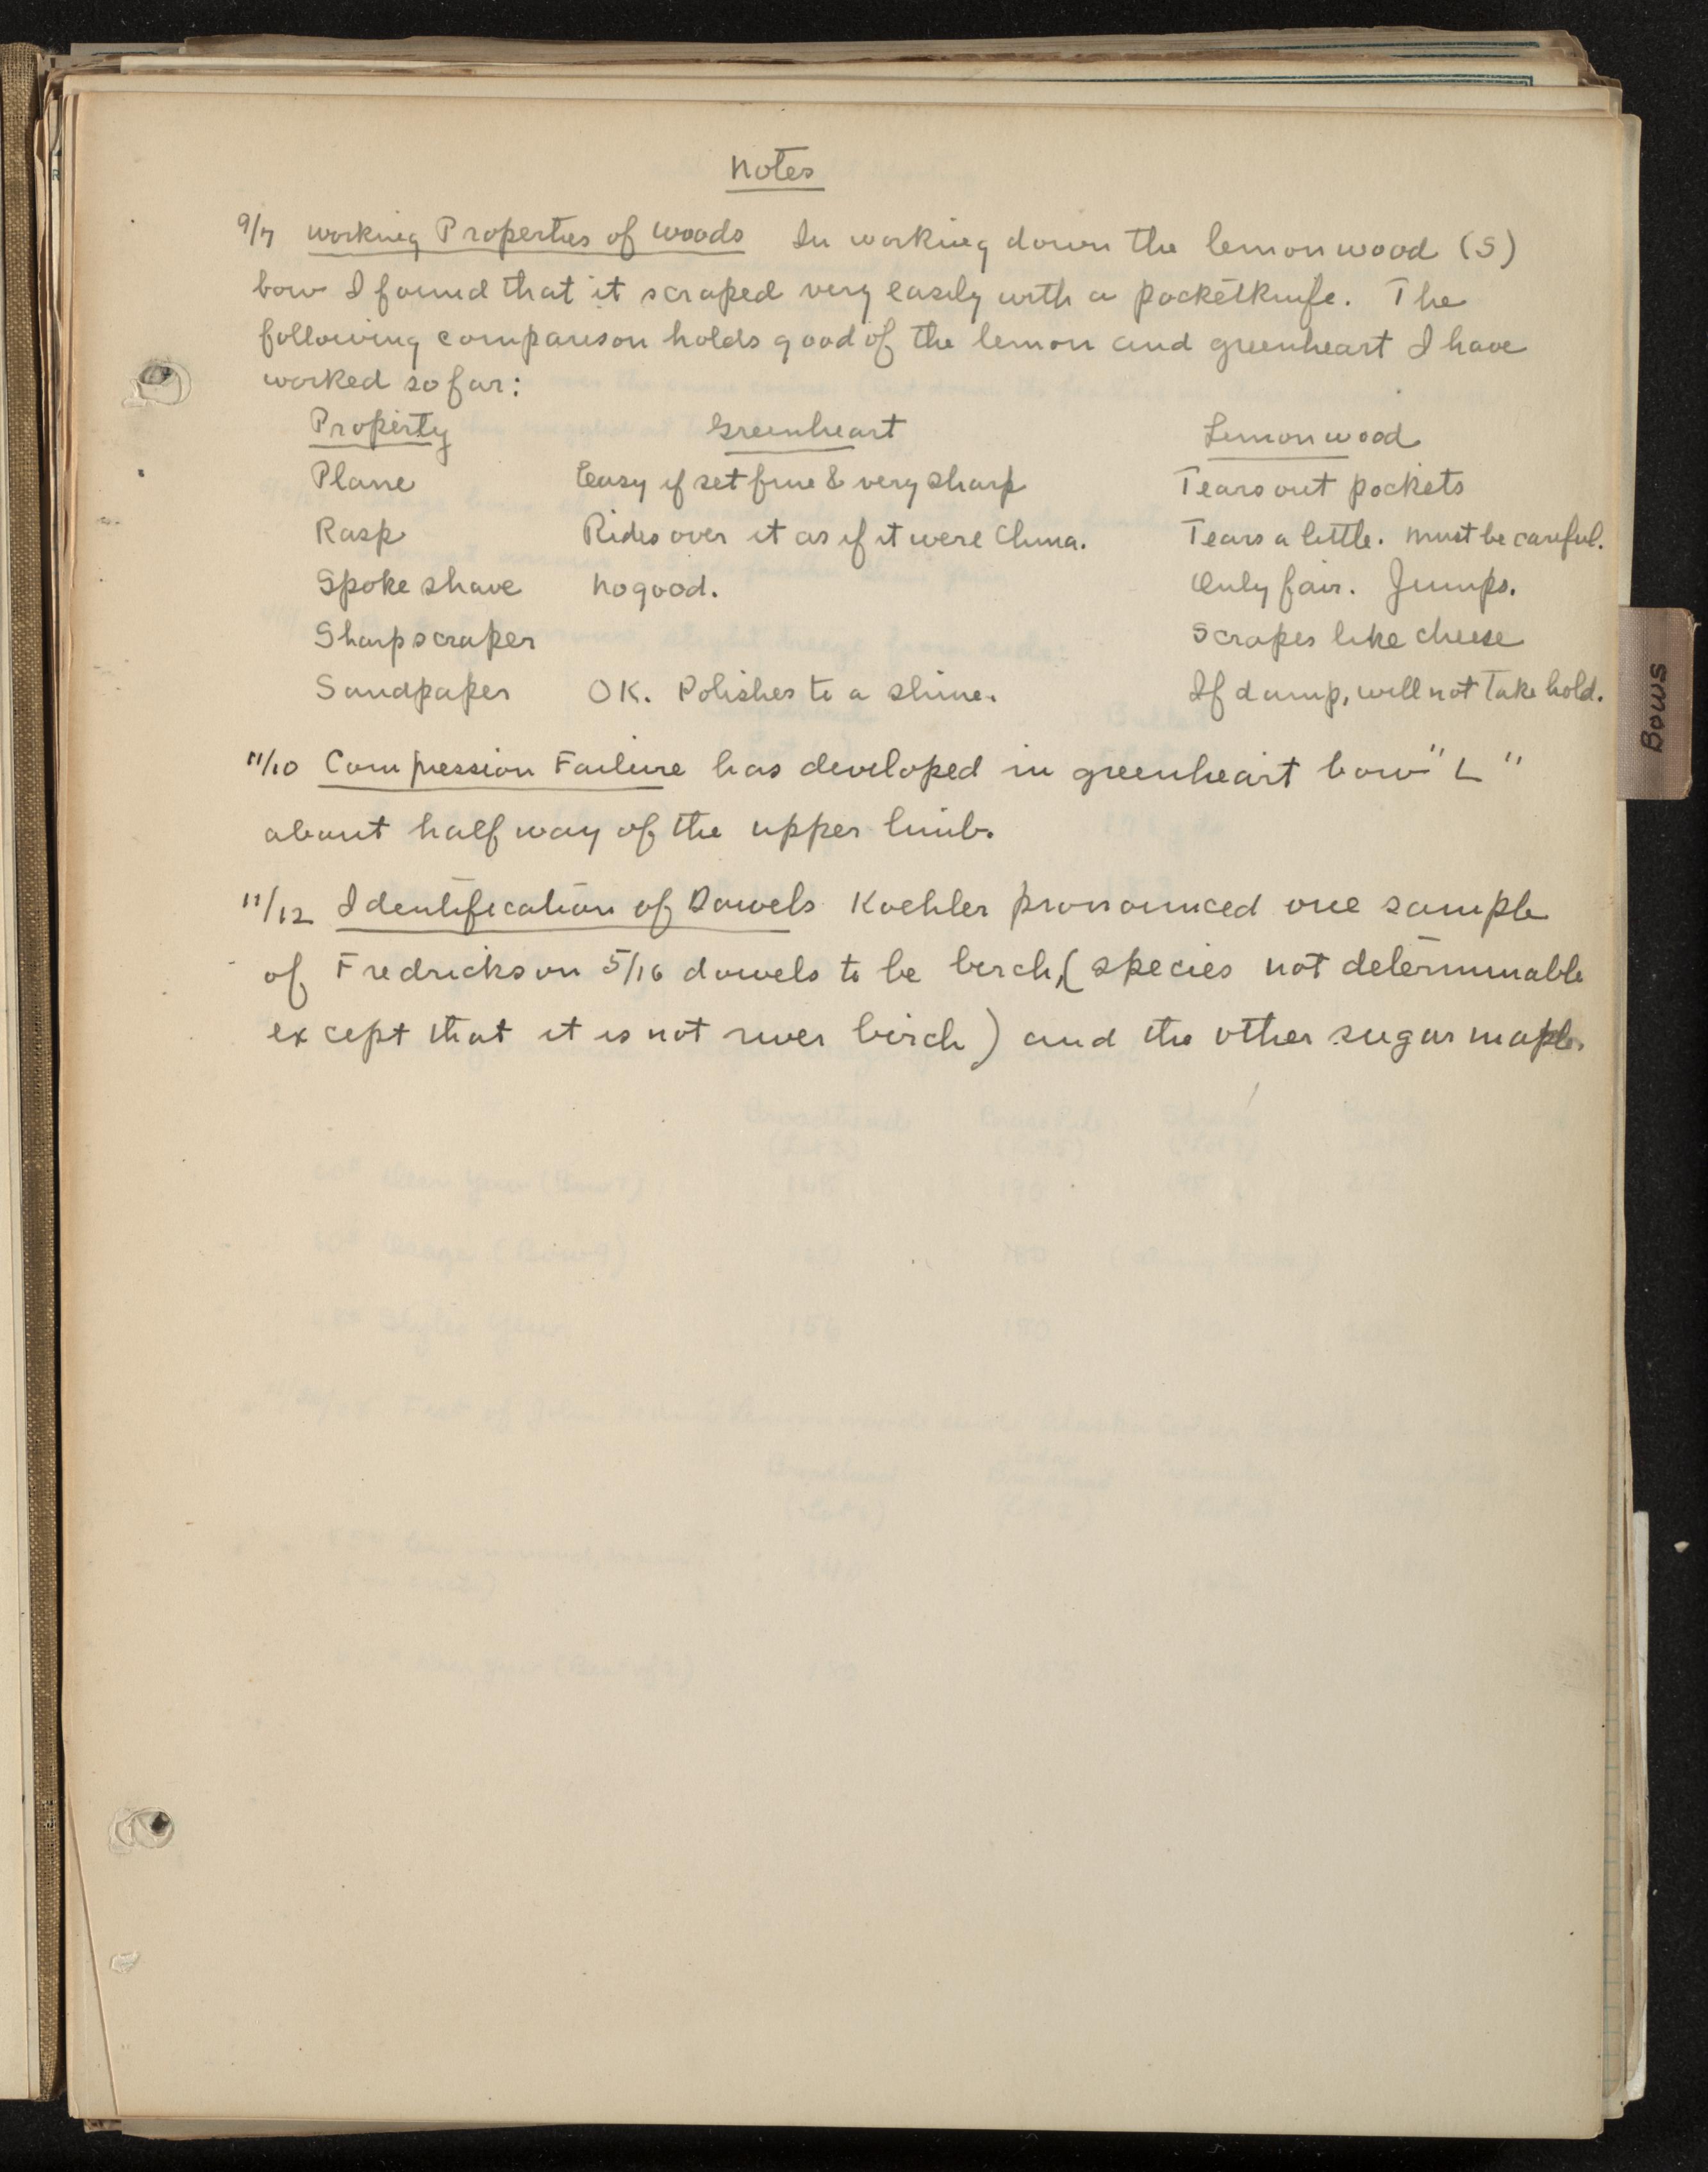 Notes
9/7 Working Properties of Woods In working down the lemonwood (S)
bow I found that it scraped very easily with a pocketknife. The
following comparison holds good of the lemon and greenheart I have
worked so far:
Property Greenheart Lemonwood
Plane Easy if set fine & very sharp Tears out pockets
Rasp Rides over it as if it were china. Tears a little. Must be careful.
Spoke shave No good. Only fair. Jumps.
Sharp scraper Scrapes like cheese
Sandpaper OK. Polishes to a shine. If damp, will not take hold.
11/10 Compression Failure has developed in greenheart bow "L"
about half way of the upper limb.
11/12 Identification of Dowels Koehler pronounced one sample
of Fredrickson 5/16 dowels to be birch, (species not determinable
except that it is not river birch) and the other sugar maple.
Bows